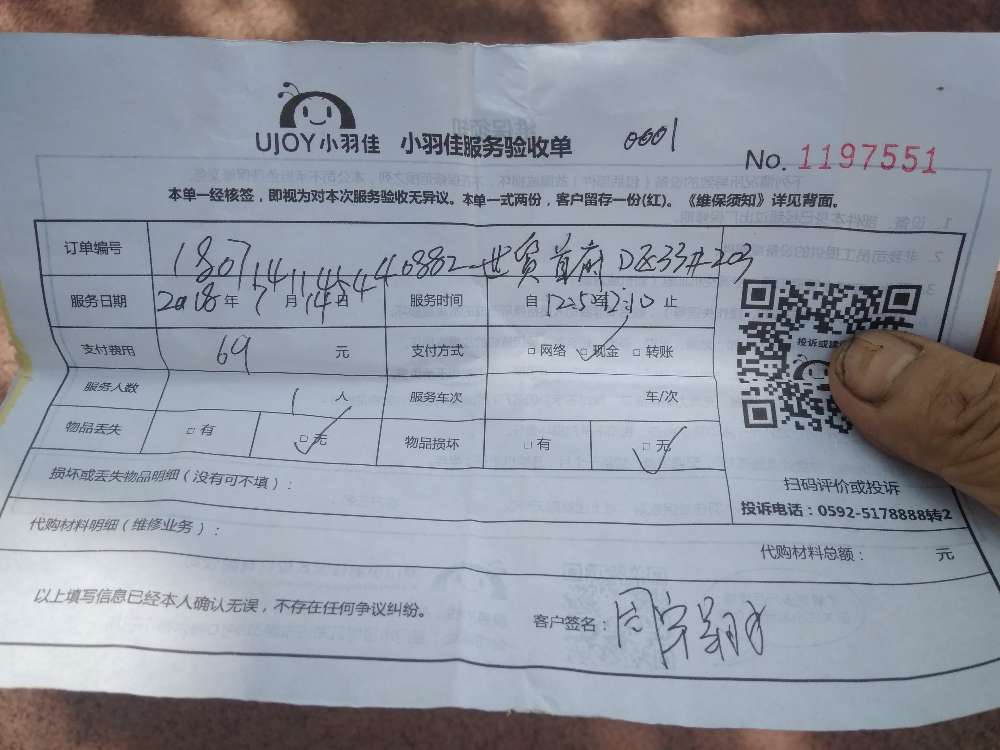 UJOY小羽佳 小羽佳服务验收单 0001
No. 1197551
本单一经核签，即视为对本次服务验收无异议。本单一式两份，客户留存一份(红)。《维保须知》详见背面。
订单编号 180714114544 0882 世贸首府D区33#203
服务日期 2018年7月14日 服务时间 自 止
支付费用 69 元 支付方式 □网络 □现金 □转账
服务人数 1人 服务车次 车/次
物品丢失 □有 □无 物品损坏 □有 □无
投诉或建
损坏或丢失物品明细(没有可不填)：
扫码评价或投诉
投诉电话：0592-5178888转2
代购材料明细(维修业务)：
代购材料总额： 元
以上填写信息已经本人确认无误，不存在任何争议纠纷。
客户签名：